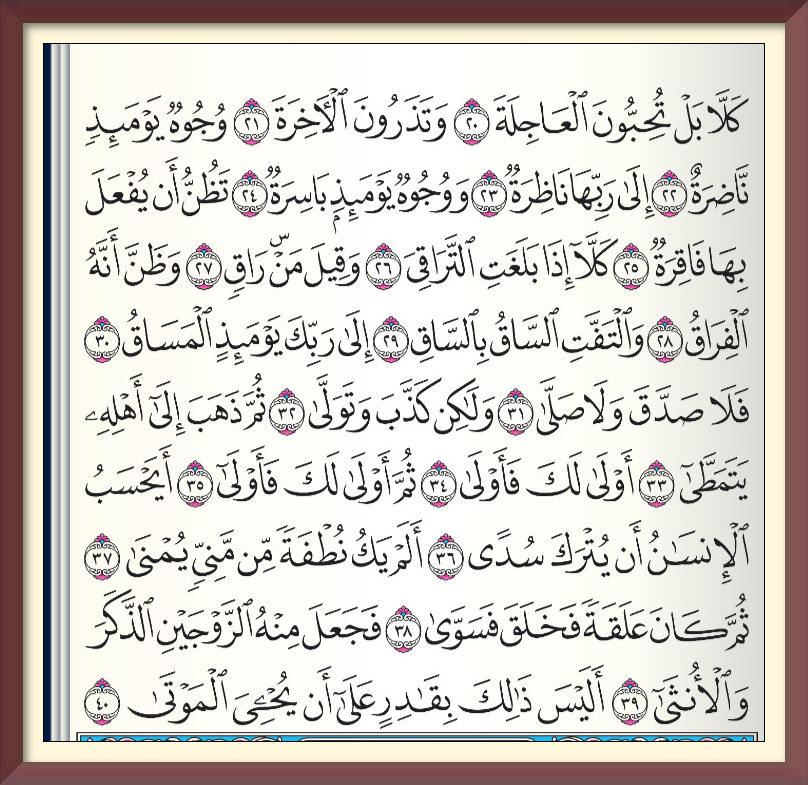 كَلَّا بَلْ تُحِبُّونَ ٱلْعَاجِلَةَ ٢٠ وَتَذَرُونَ ٱلْأٓخِرَةَ ٢١ وُجُوهٌ يَوْمَئِذٍ
نَّاضِرَةٌ ٢٢ إِلَىٰ رَبِّهَا نَاظِرَةٌ ٢٣ وَوُجُوهٌ يَوْمَئِذِۭ بَاسِرَةٌ ٢٤ تَظُنُّ أَن يُفْعَلَ
بِهَا فَاقِرَةٌ ٢٥ كَلَّآ إِذَا بَلَغَتِ ٱلتَّرَاقِىَ ٢٦ وَقِيلَ مَنْۜ رَاقٍ ٢٧ وَظَنَّ أَنَّهُ
ٱلْفِرَاقُ ٢٨ وَٱلْتَفَّتِ ٱلسَّاقُ بِٱلسَّاقِ ٢٩ إِلَىٰ رَبِّكَ يَوْمَئِذٍ ٱلْمَسَاقُ ٣٠
فَلَا صَدَّقَ وَلَا صَلَّىٰ ٣١ وَلَٰكِن كَذَّبَ وَتَوَلَّىٰ ٣٢ ثُمَّ ذَهَبَ إِلَىٰٓ أَهْلِهِۦ
يَتَمَطَّىٰٓ ٣٣ أَوْلَىٰ لَكَ فَأَوْلَىٰ ٣٤ ثُمَّ أَوْلَىٰ لَكَ فَأَوْلَىٰٓ ٣٥ أَيَحْسَبُ
ٱلْإِنسَٰنُ أَن يُتْرَكَ سُدًى ٣٦ أَلَمْ يَكُ نُطْفَةً مِّن مَّنِىٍّ يُمْنَىٰ ٣٧
ثُمَّ كَانَ عَلَقَةً فَخَلَقَ فَسَوَّىٰ ٣٨ فَجَعَلَ مِنْهُ ٱلزَّوْجَيْنِ ٱلذَّكَرَ
وَٱلْأُنثَىٰٓ ٣٩ أَلَيْسَ ذَٰلِكَ بِقَٰدِرٍ عَلَىٰٓ أَن يُحْـِۧىَ ٱلْمَوْتَىٰ ٤٠